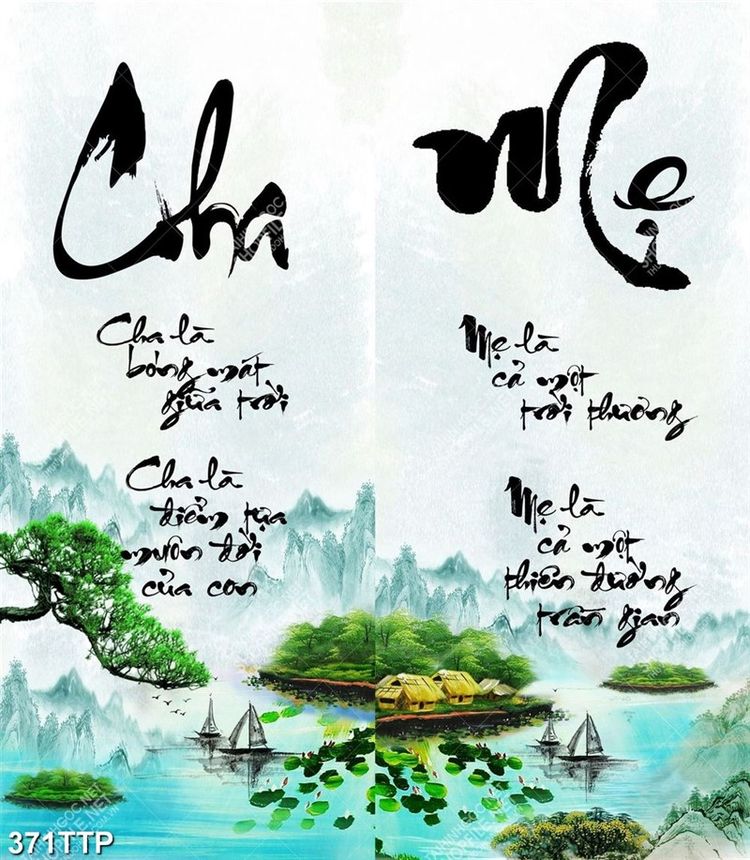 Cha
Cha là
bóng mát
giữa trời
Cha là
điểm tựa
muôn đời
của con
Mẹ
Mẹ là
cả một
trời thương
Mẹ là
cả một
thiên đường
trần gian
371TTP